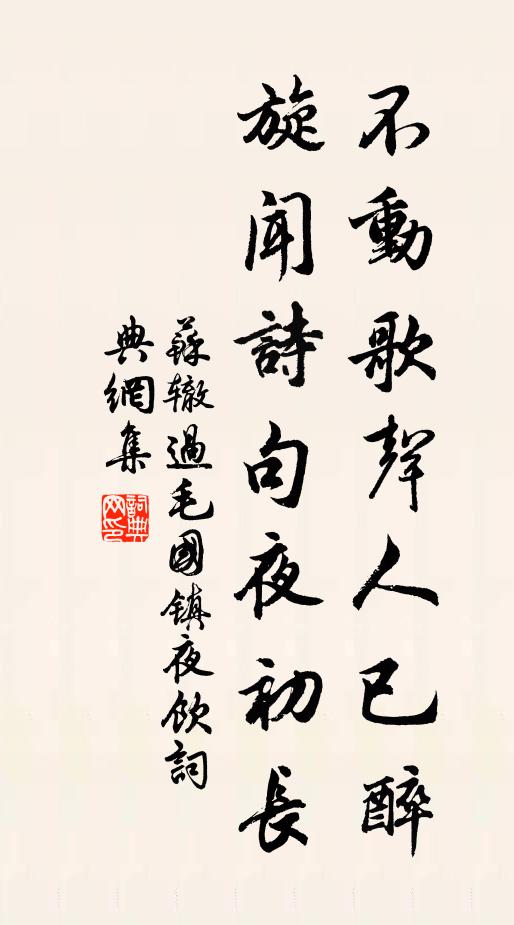 不動歌聲人已醉
旋聞詩句夜初長
蘇轍過毛國鎮夜飲詞
典網集
詞典網印